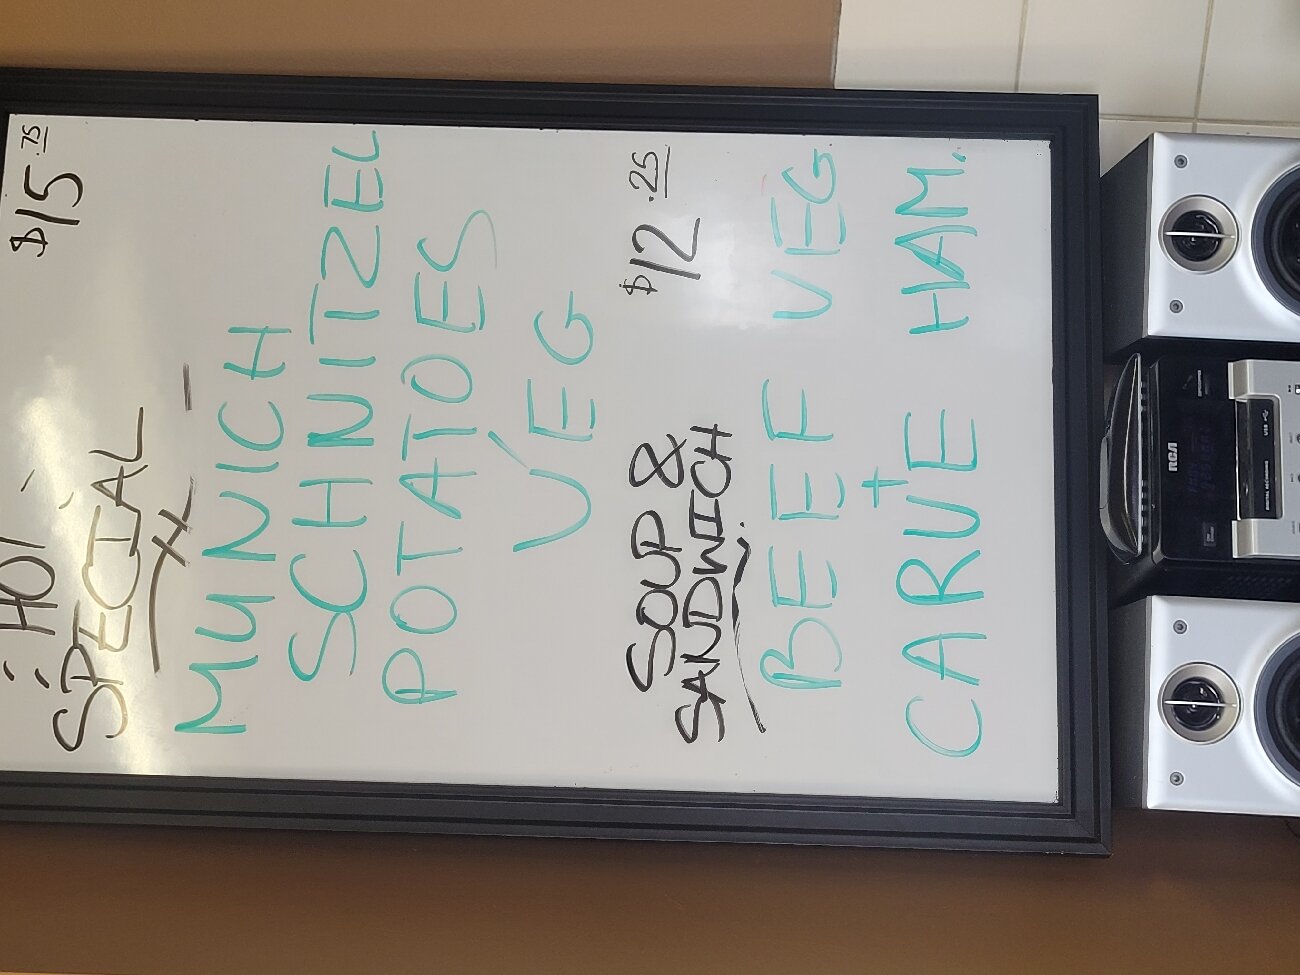 HOT
SPECIAL
$15.75
MUNICH
SCHNITZEL
POTATOES
VEG
SOUP &
SANDWICH
$12.25
BEEF VEG
+
CARVE HAM.
RCA